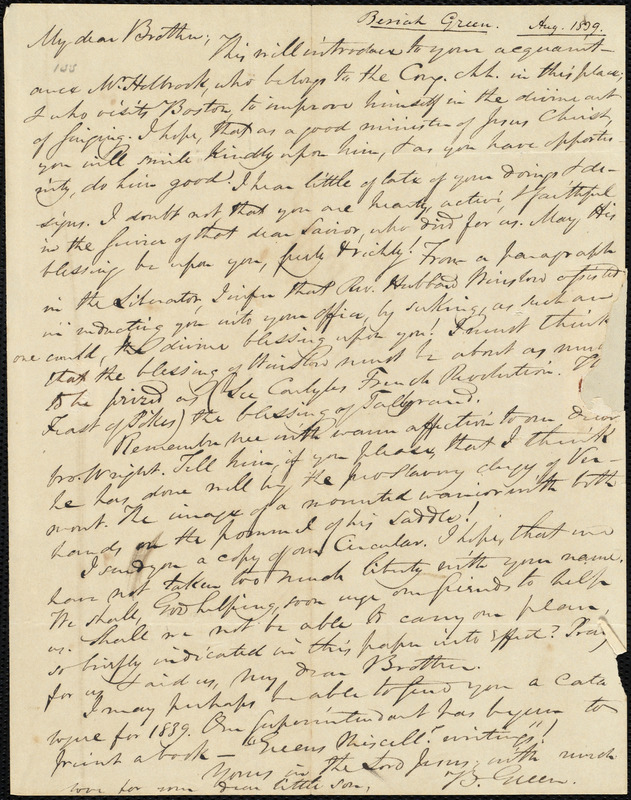 Beriah Green. Aug. 1839.
My dear Brother; This will introduce to your acquaint-
155
ance Mr. Holbrook, who belongs to the Cong. Chh. in this place;
& who visits Boston, to improve himself in the divine art
of singing. I hope, that as a good minister of Jesus Christ,
you will smile kindly upon him, & as you have opportu-
nity, do him good. I hear little of late of your doings & de-
signs. I doubt not that you are hearty, active, & faithful
in the service of that dear Savior, who died for us. May His
blessing be upon you, freely & richly! From a paragraph
in the Liberator, I infer that Rev. Hubbard Winslow assisted
in inducting you into your office, by seeking, as such an
one could, the divine blessing upon you! I must think
that the blessing of Winslow must be about as much
to be prized as (See Carlyles French Revolution.
Feast of Pikes) the blessing of Talleyrand.
Remember me with warm affection to our dear
bro. Wright. Tell him, if you please, that I think
he has done well by the proslavery clergy of Ver-
mont. The image of a mounted warrior with both
hands on the pommel of his saddle!
I send you a copy of our Circular. I hope, that we
have not taken too much liberty with your name.
We shall, God helping, soon urge our friends to help
us. Shall we not be able to carry our plan,
so briefly indicated in this paper into effect? Pray
for us & aid us, my dear Brother.
I may perhaps be able to send you a cata
logue for 1839. Our superintendent has begun to
print a book — "Greens Miscell. writings"!
Yours in the Lord Jesus, with much
love for your dear little son, B. Green.